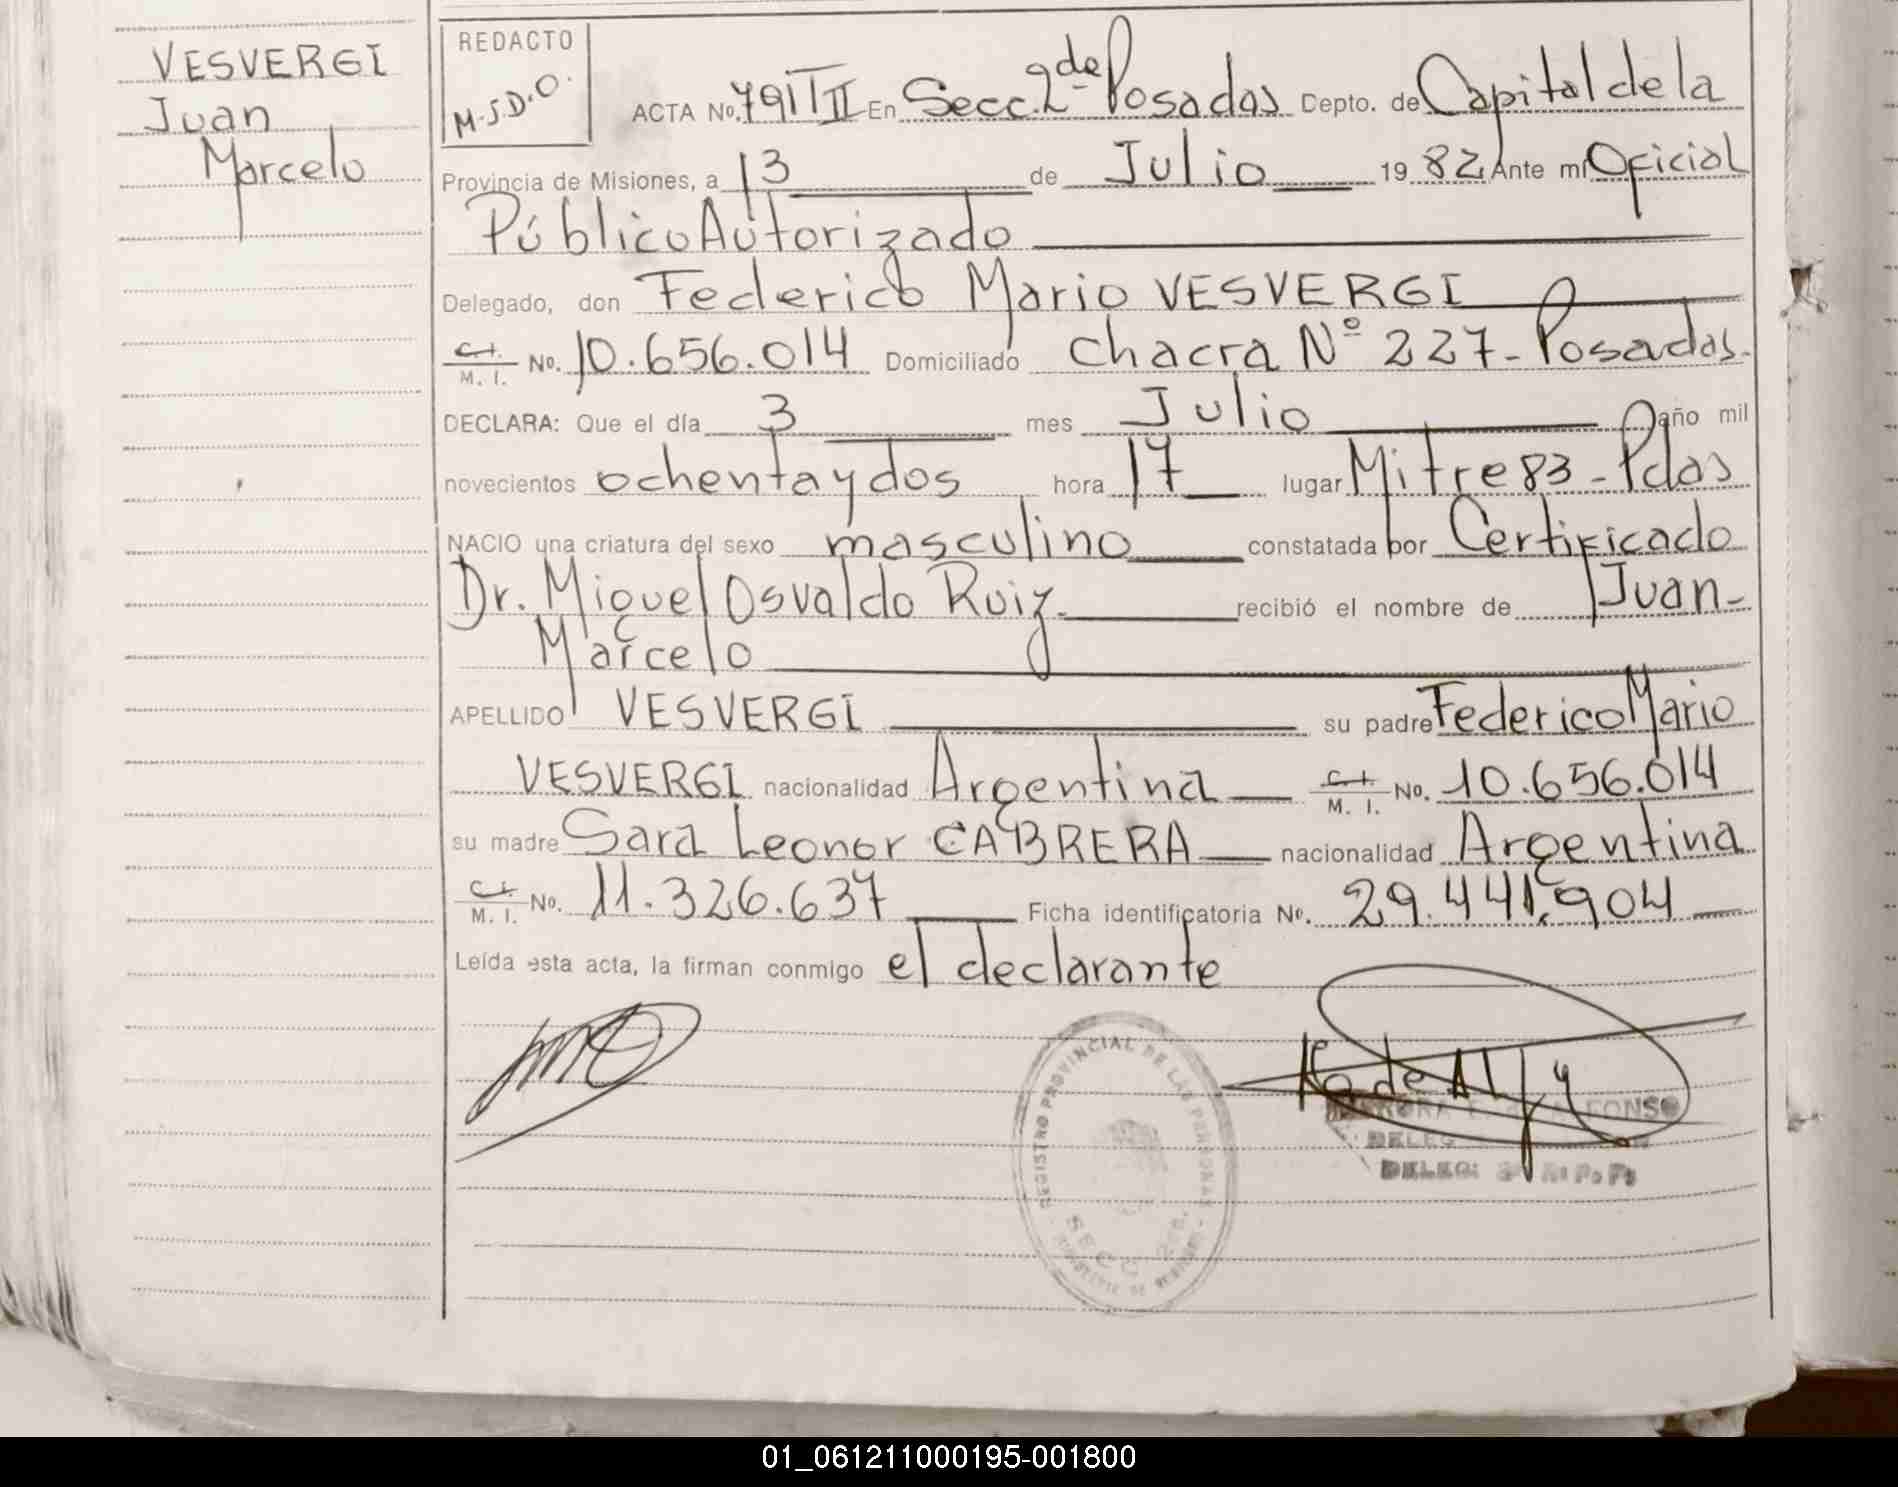 VESVERGI
Juan
Marcelo
REDACTO
M.J.D.O.
ACTA No. 791 T II En Secc. 2ª de Posadas Depto. de Capital de la
Provincia de Misiones, a 13 de Julio 19 82 Ante mí Oficial
Público Autorizado
Delegado, don Federico Mario VESVERGI
C.I. M. I. No. 10.656.014 Domiciliado Chacra Nº 227- Posadas.
DECLARA: Que el día 3 mes Julio año mil
novecientos ochenta y dos hora 17 lugar Mitre 83 - Pdas
NACIO una criatura del sexo masculino constatada por Certificado
Dr. Miguel Osvaldo Ruiz. recibió el nombre de Juan-
Marcelo
APELLIDO VESVERGI su padre Federico Mario
VESVERGI nacionalidad Argentina C.I. M. I. No. 10.656.014
su madre Sara Leonor CABRERA nacionalidad Argentina
C.I. M. I. No. 11.326.637 Ficha identificatoria No. 29.441.904
Leída esta acta, la firman conmigo el declarante
REGISTRO PROVINCIAL DE LAS PERSONAS
SECC
DELEG.
01_061211000195-001800